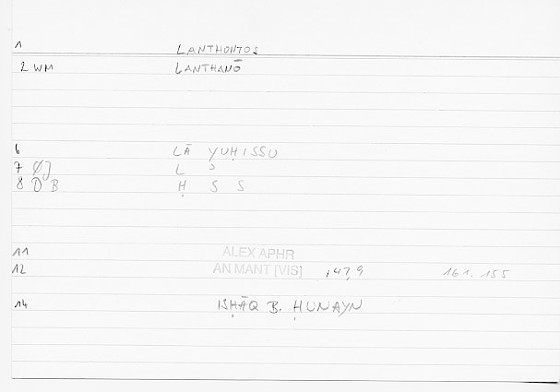 1 LANTHONTOS
2 WM LANTHANŌ
6 LĀ YUḤISSU
7 ØJ L ͻ
8 D B Ḥ S S
11 ALEX APHR
12 AN MANT [VIS] ,47,9 161.155
14 ISḤĀQ B. ḤUNAYN